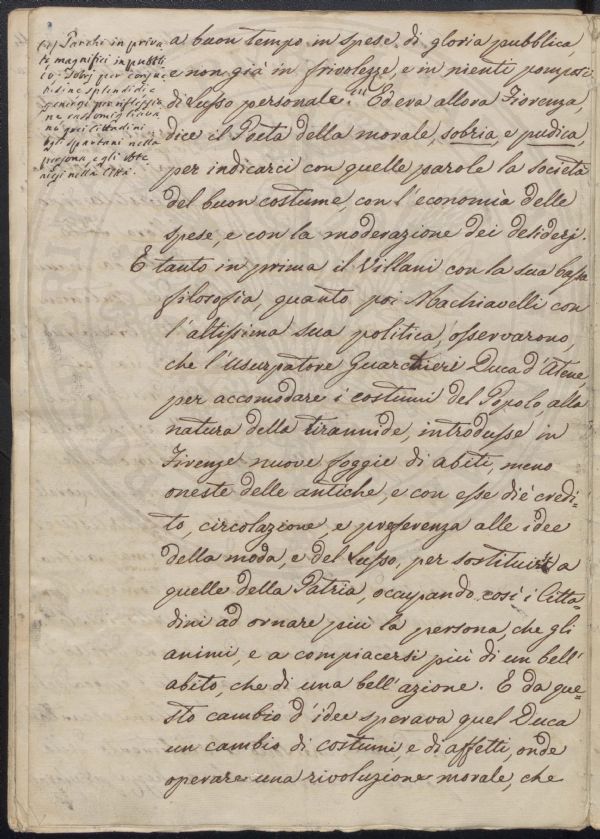 (1) Parchi in priva-
ti, magnifici in pubbli-
co. Sobrj per consue-
tudine, splendidi, e
generosi per riflessio-
ne rassomigliava-
no quei cittadini
agli spartani nella
persona, e gli Ate-
niesi nella Città.
a buon tempo in spese di gloria pubblica,
e non già in frivolezze, e in nienti pomposi
di Lusso personale. (1) Ed era allora Fiorenza,
dice il Poeta della morale, sobria, e pudica,
per indicarci con quelle parole la società
del buon costume, con l'economia delle
spese, e con la moderazione dei desiderj.
E tanto in prima il Villani con la sua bassa
filosofia, quanto poi Machiavelli con
l'altissima sua politica, osservarono,
che l'Usurpatore Guarchieri Duca d'Atene,
per accomodare i costumi del Popolo, alla
natura della tirannide, introdusse in
Firenze nuove foggie di abiti, meno
oneste delle antiche, e con esse diè credi-
to, circolazione, e preferenza alle idee
della moda, e del Lusso, per sostituirle a
quelle della Patria, occupando così i Citta-
dini ad ornare più la persona, che gli
animi, e a compiacersi più di un bell'
abito, che di una bell'azione. E da que-
sto cambio d'idee sperava quel Duca
un cambio di costumi, e di affetti, onde
operare una rivoluzione morale, che